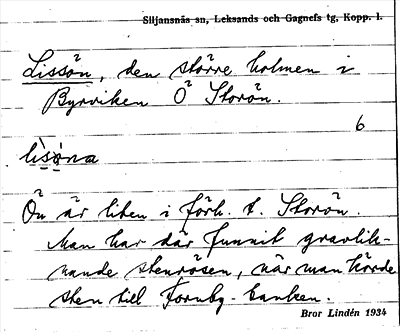 Siljansnäs sn, Leksands och Gagnefs tg, Kopp. l.
Lissön, den större holmen i
Byrviken Ö Storön.
6
lìsøna
Ön är liten i förh. t. Storön.
Man har där funnit gravlik-
nande stenrösen, när man körde
sten till Fornby-banken.
Bror Lindén 1934